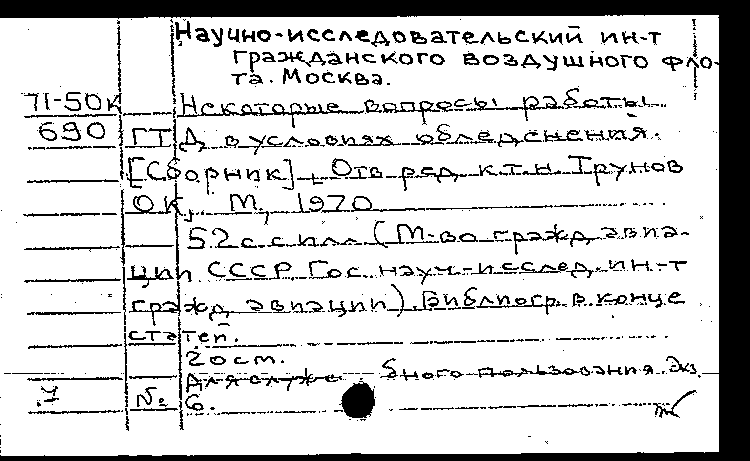 Научно-исследовательский ин-т
гражданского воздушного фло-
та. Москва.
71-50к Некоторые вопросы работы
690 ГТД в условиях обледенения.
[Сборник]. Отв ред. к.т.н. Трунов
ОК, М., 1970
52 с с илл (М-во гражд авиа-
ции СССР. Гос. науч-исслед. ин-т
гражд авиации). Библиогр. в конце
статей.
20 cm.
Для служебного пользования. Экз.
№ 6.